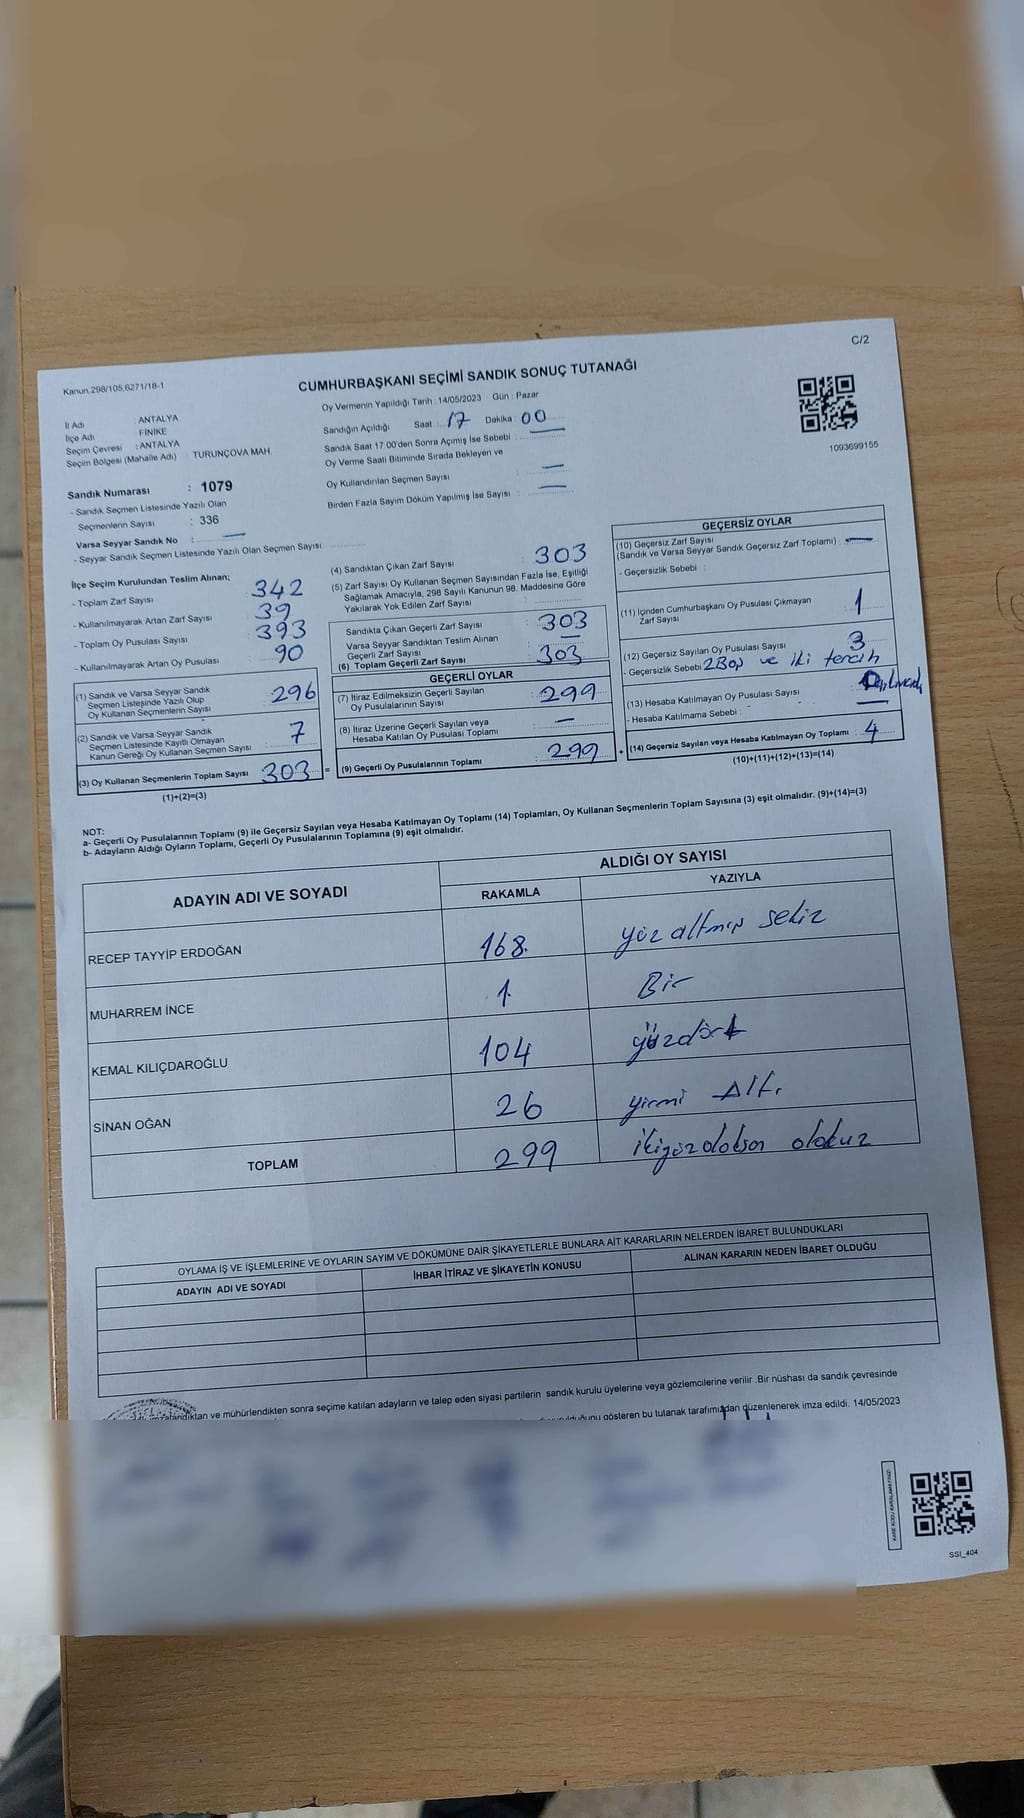 C/2
Kanun.298/105,6271/18-1
CUMHURBAŞKANI SEÇİMİ SANDIK SONUÇ TUTANAĞI
İl Adı : ANTALYA
İlçe Adı : FİNİKE
Seçim Çevresi : ANTALYA
Seçim Bölgesi (Mahalle Adı) : TURUNÇOVA MAH.
Sandık Numarası : 1079
- Sandık Seçmen Listesinde Yazılı Olan
Seçmenlerin Sayısı : 336
Varsa Seyyar Sandık No : —
- Seyyar Sandık Seçmen Listesinde Yazılı Olan Seçmen Sayısı
Oy Vermenin Yapıldığı Tarih : 14/05/2023 Gün : Pazar
Sandığın Açıldığı Saat : 17 Dakika : 00
Sandık Saat 17.00'den Sonra Açımış İse Sebebi : —
Oy Verme Saati Bitiminde Sırada Bekleyen ve
Oy Kullandırılan Seçmen Sayısı : —
Birden Fazla Sayım Döküm Yapılmış İse Sayısı : —
1093699155
İlçe Seçim Kurulundan Teslim Alınan;
- Toplam Zarf Sayısı 342
- Kullanılmayarak Artan Zarf Sayısı 39
- Toplam Oy Pusulası Sayısı 393
- Kullanılmayarak Artan Oy Pusulası 90
(1) Sandık ve Varsa Seyyar Sandık
Seçmen Listesinde Yazılı Olup
Oy Kullanan Seçmenlerin Sayısı 296
(2) Sandık ve Varsa Seyyar Sandık
Seçmen Listesinde Kayıtlı Olmayan
Kanun Gereği Oy Kullanan Seçmen Sayısı 7
(3) Oy Kullanan Seçmenlerin Toplam Sayısı 303 =
(1)+(2)=(3)
(4) Sandıktan Çıkan Zarf Sayısı : 303
(5) Zarf Sayısı Oy Kullanan Seçmen Sayısından Fazla İse, Eşitliği
Sağlamak Amacıyla, 298 Sayılı Kanunun 98. Maddesine Göre
Yakılarak Yok Edilen Zarf Sayısı
Sandıkta Çıkan Geçerli Zarf Sayısı : 303
Varsa Seyyar Sandıktan Teslim Alınan
Geçerli Zarf Sayısı : —
(6) Toplam Geçerli Zarf Sayısı : 303
GEÇERLİ OYLAR
(7) İtiraz Edilmeksizin Geçerli Sayılan
Oy Pusulalarının Sayısı : 299
(8) İtiraz Üzerine Geçerli Sayılan veya
Hesaba Katılan Oy Pusulası Toplamı : —
(9) Geçerli Oy Pusulalarının Toplamı : 299 +
GEÇERSİZ OYLAR
(10) Geçersiz Zarf Sayısı
(Sandık ve Varsa Seyyar Sandık Geçersiz Zarf Toplamı) : —
- Geçersizlik Sebebi :
(11) İçinden Cumhurbaşkanı Oy Pusulası Çıkmayan
Zarf Sayısı : 1
(12) Geçersiz Sayılan Oy Pusulası Sayısı : 3
- Geçersizlik Sebebi 2 Boş ve iki tercih
(13) Hesaba Katılmayan Oy Pusulası Sayısı : —
- Hesaba Katılmama Sebebi :
(14) Geçersiz Sayılan veya Hesaba Katılmayan Oy Toplamı : 4
(10)+(11)+(12)+(13)=(14)
NOT:
a- Geçerli Oy Pusulalarının Toplamı (9) ile Geçersiz Sayılan veya Hesaba Katılmayan Oy Toplamı (14) Toplamları, Oy Kullanan Seçmenlerin Toplam Sayısına (3) eşit olmalıdır. (9)+(14)=(3)
b- Adayların Aldığı Oyların Toplamı, Geçerli Oy Pusulalarının Toplamına (9) eşit olmalıdır.
ADAYIN ADI VE SOYADI
ALDIĞI OY SAYISI
RAKAMLA YAZIYLA
RECEP TAYYİP ERDOĞAN 168 yüz altmış sekiz
MUHARREM İNCE 1 Bir
KEMAL KILIÇDAROĞLU 104 yüzdört
SİNAN OĞAN 26 yirmi Altı
TOPLAM 299 ikiyüzdoksan dokuz
OYLAMA İŞ VE İŞLEMLERİNE VE OYLARIN SAYIM VE DÖKÜMÜNE DAİR ŞİKAYETLERLE BUNLARA AİT KARARLARIN NELERDEN İBARET BULUNDUKLARI
ADAYIN ADI VE SOYADI İHBAR İTİRAZ VE ŞİKAYETİN KONUSU ALINAN KARARIN NEDEN İBARET OLDUĞU
mühürlendikten sonra seçime katılan adayların ve talep eden siyasi partilerin sandık kurulu üyelerine veya gözlemcilerine verilir .Bir nüshası da sandık çevresinde
gösteren bu tutanak tarafımızdan düzenlenerek imza edildi. 14/05/2023
SSI_404